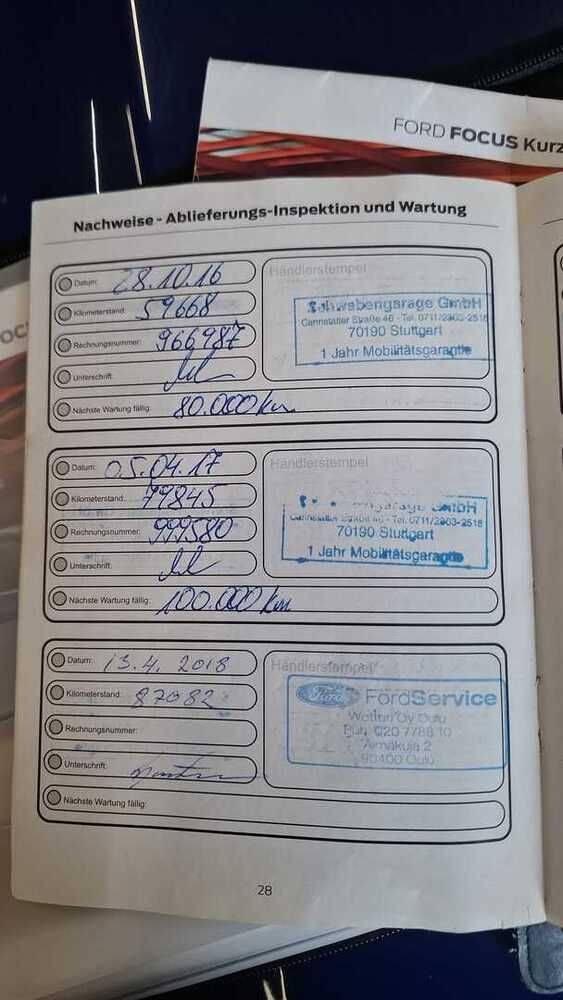 FORD FOCUS Kurz
Nachweise - Ablieferungs-Inspektion und Wartung
Datum: 28.10.16
Händlerstempel
Kilometerstand: 59668
Schwabengarage GmbH
Cannstatter Straße 46 - Tel. 0711/2303-2518
70190 Stuttgart
1 Jahr Mobilitätsgarantie
Rechnungsnummer: 966987
Unterschrift:
Nächste Wartung fällig: 80.000 km
Datum: 05.04.17
Händlerstempel
Kilometerstand: 79845
GmbH
Cannstatter Straße 46 - Tel. 0711/2303-2518
70190 Stuttgart
1 Jahr Mobilitätsgarantie
Rechnungsnummer: 999580
Unterschrift:
Nächste Wartung fällig: 100.000 km
Datum: 13.4. 2018
Händlerstempel
Kilometerstand: 87082
Ford FordService
Oy Oulu
Puh. 020 7788 10
2
90400 Oulu
Rechnungsnummer:
Unterschrift:
Nächste Wartung fällig:
28